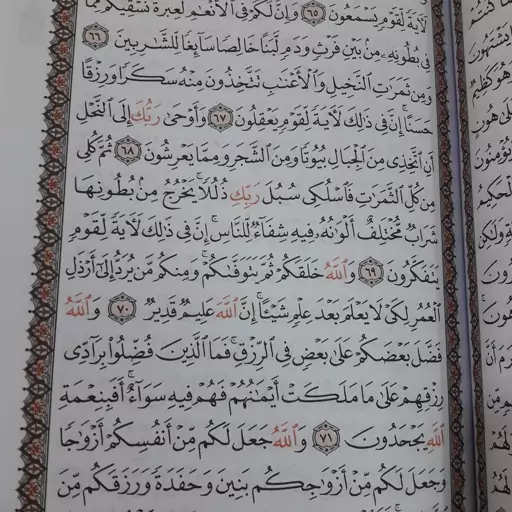 لَآيَةً لِّقَوْمٍ يَسْمَعُونَ ٦٥ وَإِنَّ لَكُمْ فِي الْأَنْعَٰمِ لَعِبْرَةً نُّسْقِيكُم مِّمَّا
فِي بُطُونِهِۦ مِنۢ بَيْنِ فَرْثٍ وَدَمٍ لَّبَنًا خَالِصًا سَآئِغًا لِّلشَّٰرِبِينَ ٦٦
وَمِن ثَمَرَٰتِ النَّخِيلِ وَالْأَعْنَٰبِ تَتَّخِذُونَ مِنْهُ سَكَرًا وَرِزْقًا
حَسَنًا إِنَّ فِي ذَٰلِكَ لَآيَةً لِّقَوْمٍ يَعْقِلُونَ ٦٧ وَأَوْحَىٰ رَبُّكَ إِلَى النَّحْلِ
أَنِ اتَّخِذِي مِنَ الْجِبَالِ بُيُوتًا وَمِنَ الشَّجَرِ وَمِمَّا يَعْرِشُونَ ٦٨ ثُمَّ كُلِي
مِن كُلِّ الثَّمَرَٰتِ فَاسْلُكِي سُبُلَ رَبِّكِ ذُلُلًا يَخْرُجُ مِنۢ بُطُونِهَا
شَرَابٌ مُّخْتَلِفٌ أَلْوَٰنُهُۥ فِيهِ شِفَآءٌ لِّلنَّاسِ إِنَّ فِي ذَٰلِكَ لَآيَةً لِّقَوْمٍ
يَتَفَكَّرُونَ ٦٩ وَاللَّهُ خَلَقَكُمْ ثُمَّ يَتَوَفَّىٰكُمْ وَمِنكُم مَّن يُرَدُّ إِلَىٰ أَرْذَلِ
الْعُمُرِ لِكَيْ لَا يَعْلَمَ بَعْدَ عِلْمٍ شَيْـًٔا إِنَّ اللَّهَ عَلِيمٌ قَدِيرٌ ٧٠ وَاللَّهُ
فَضَّلَ بَعْضَكُمْ عَلَىٰ بَعْضٍ فِي الرِّزْقِ فَمَا الَّذِينَ فُضِّلُوا بِرَآدِّي
رِزْقِهِمْ عَلَىٰ مَا مَلَكَتْ أَيْمَٰنُهُمْ فَهُمْ فِيهِ سَوَآءٌ أَفَبِنِعْمَةِ
اللَّهِ يَجْحَدُونَ ٧١ وَاللَّهُ جَعَلَ لَكُم مِّنْ أَنفُسِكُمْ أَزْوَٰجًا
وَجَعَلَ لَكُم مِّنْ أَزْوَٰجِكُم بَنِينَ وَحَفَدَةً وَرَزَقَكُم مِّنَ